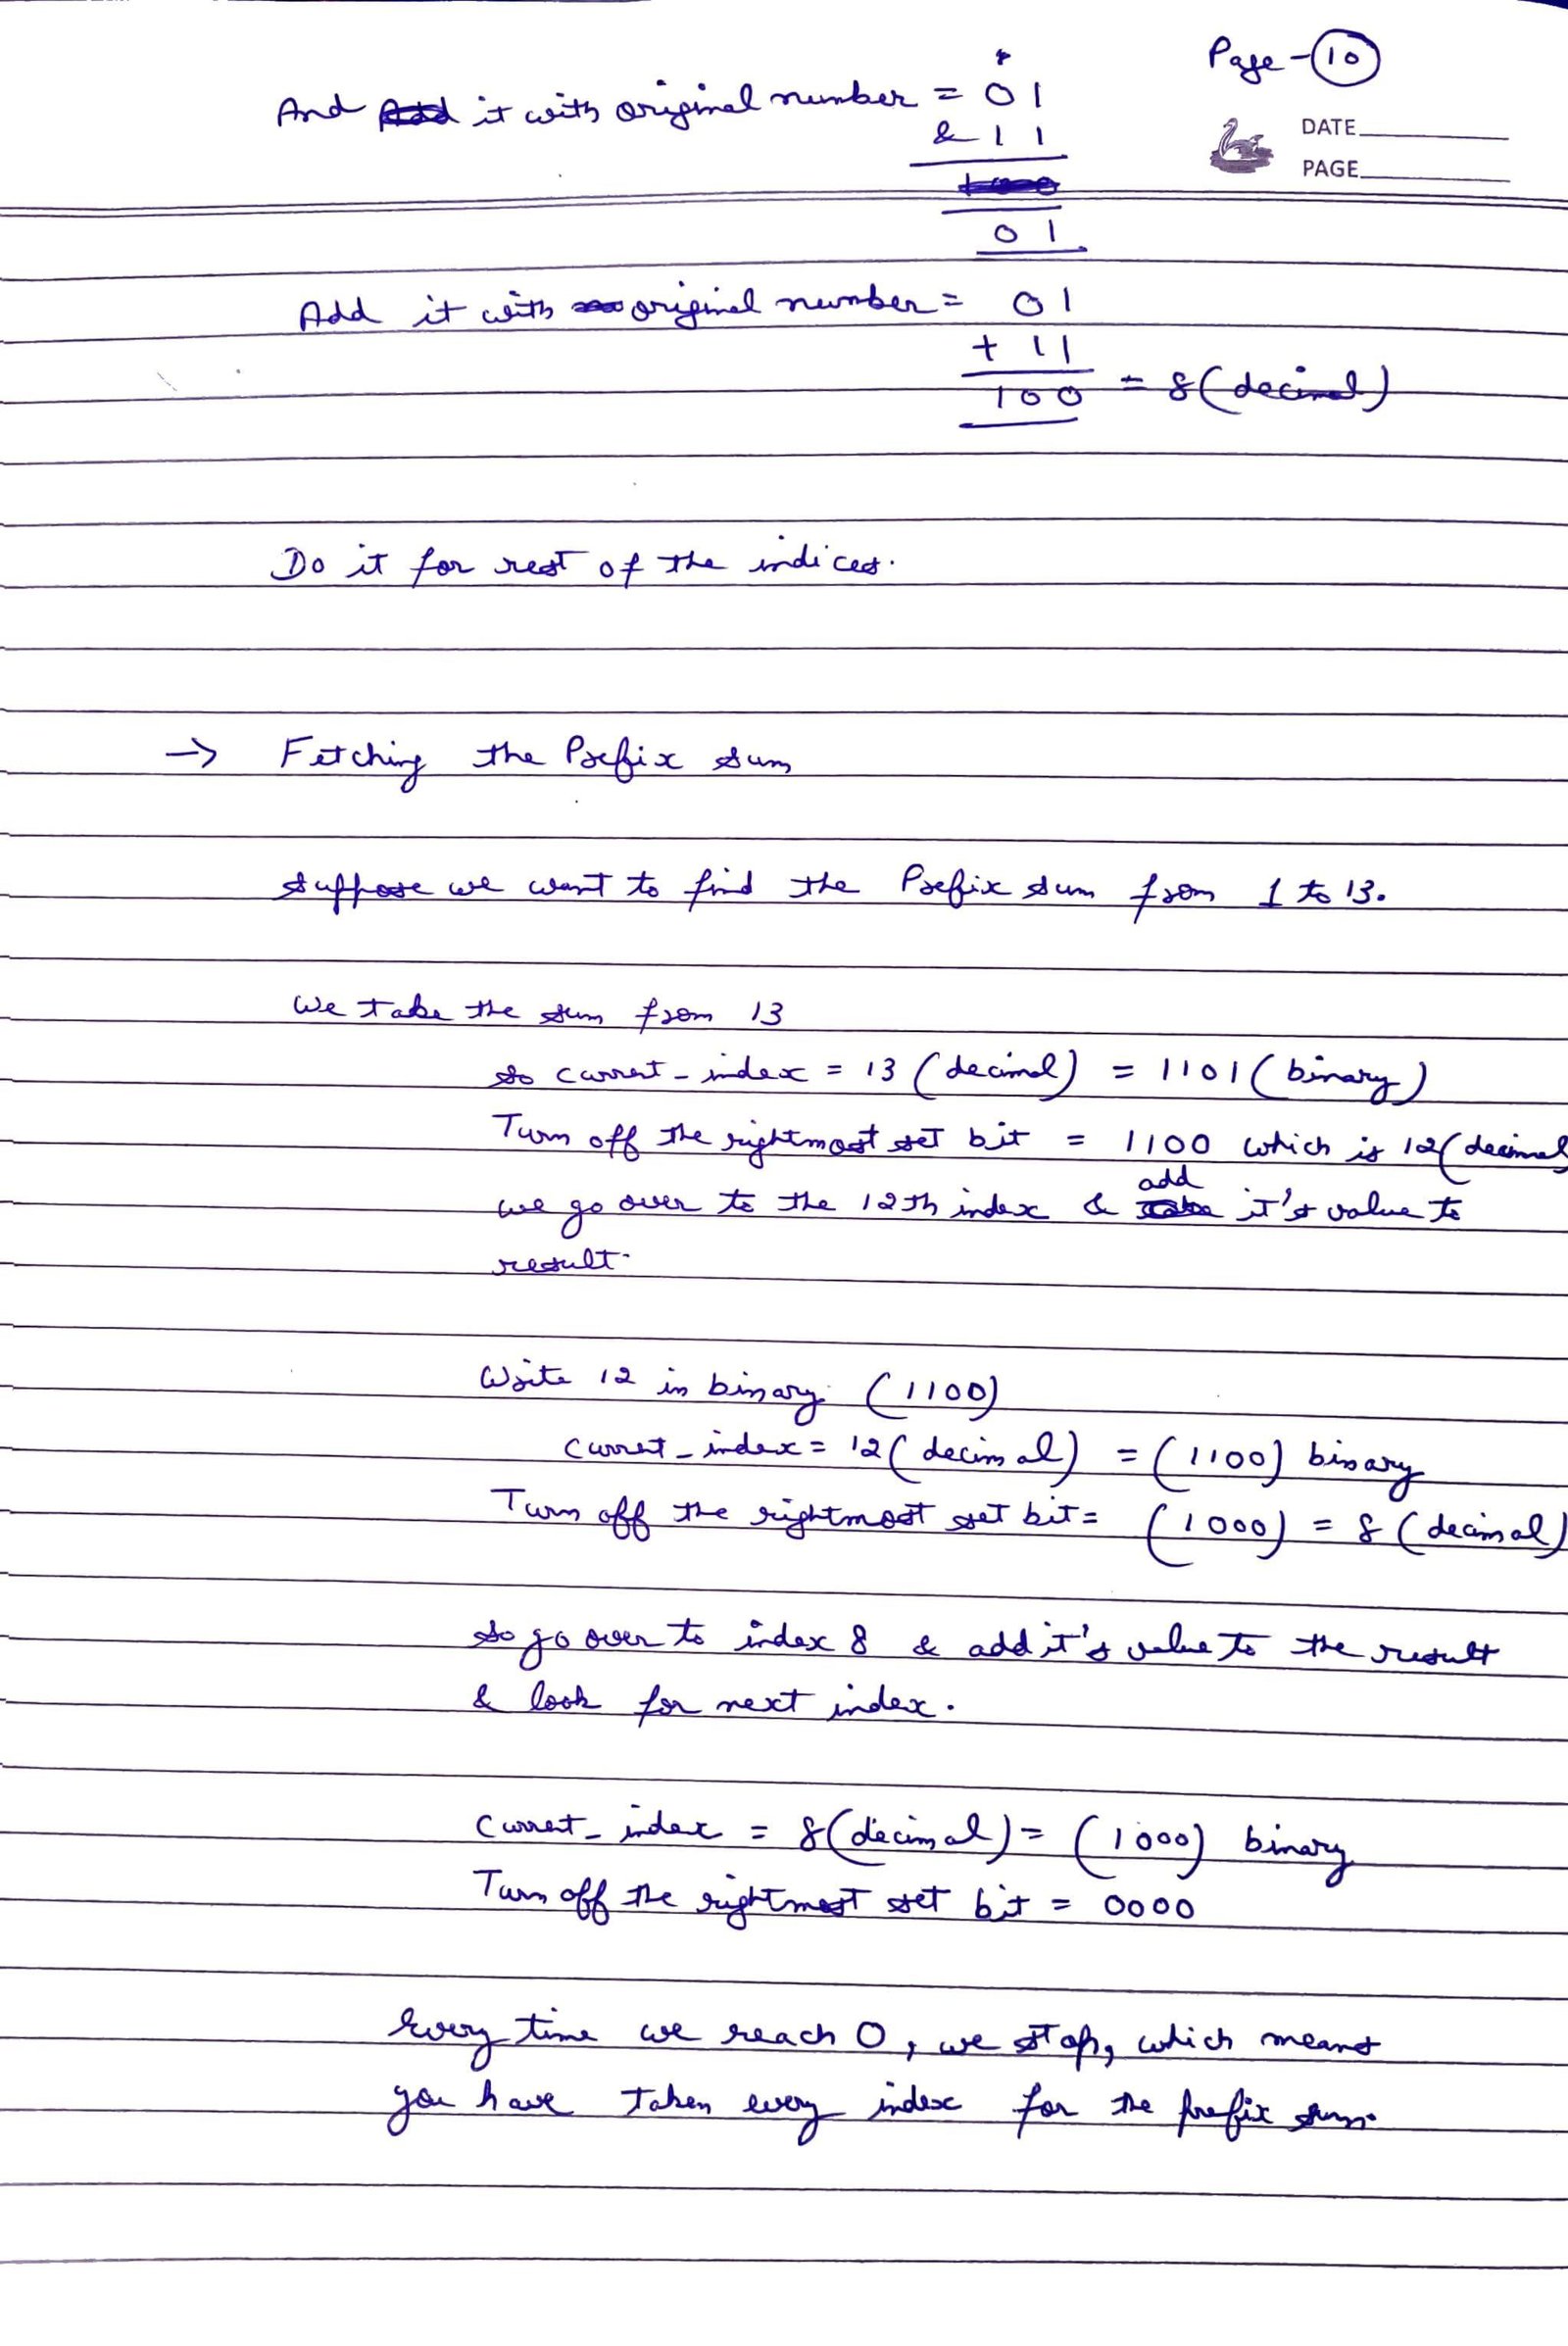 Page-10
And it with original number = 01
& 11
DATE
PAGE
01
Add it with original number = 01
+ 11
100 = 8(decimal)
Do it for rest of the indices.
→ Fetching the Prefix sum
Suppose we want to find the Prefix sum from 1 to 13.
We take the sum from 13
So current_index = 13 (decimal) = 1101 (binary)
Turn off the rightmost set bit = 1100 which is 12(decimal
add
we go over to the 12th index & it's value to
result.
Write 12 in binary (1100)
current_index = 12 (decimal) = (1100) binary
Turn off the rightmost set bit = (1000) = 8 (decimal)
So go over to index 8 & add it's value to the result
& look for next index.
Current_index = 8(decimal) = (1000) binary
Turn off the rightmost set bit = 0000
Every time we reach 0, we stop, which means
you have taken every index for the prefix sum.